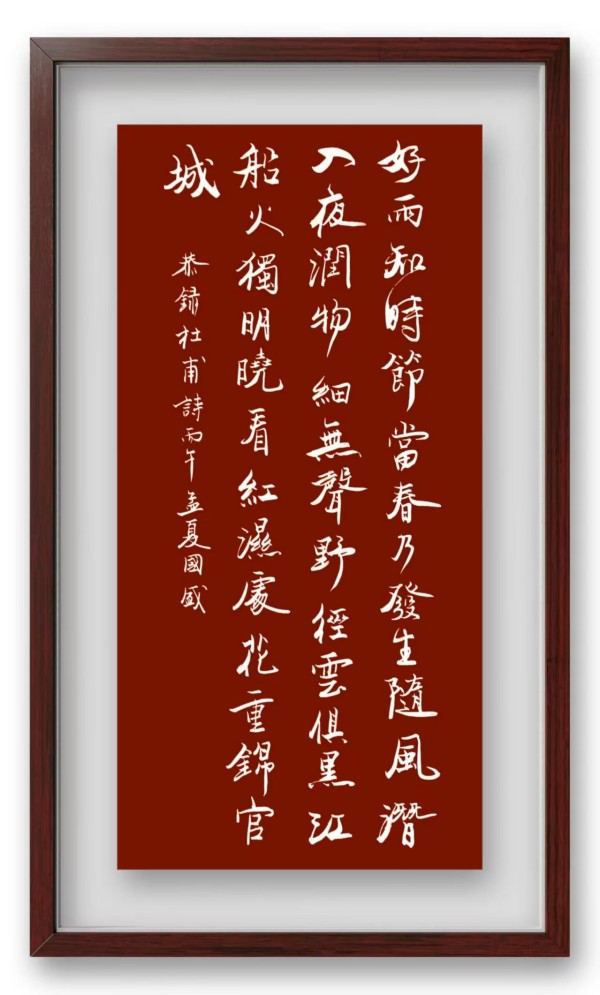 好雨知時節當春乃發生隨風潛
入夜潤物細無聲野徑雲俱黑江
船火獨明曉看紅濕處花重錦官
城
恭錄杜甫詩丙午孟夏國盛